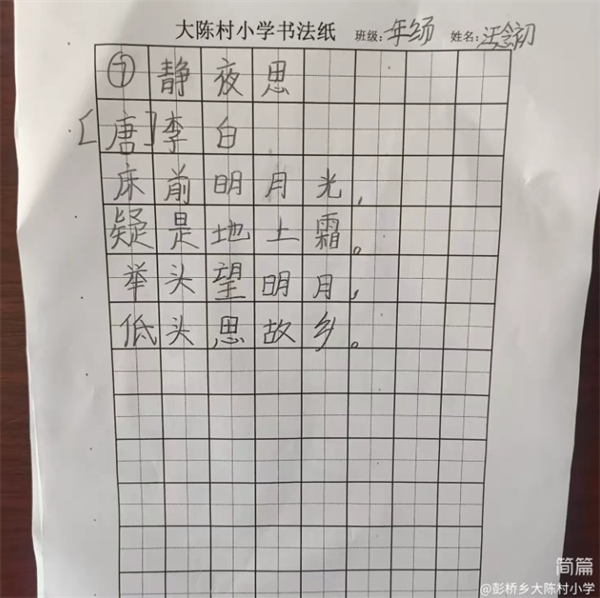 大陈村小学书法纸 班级: 年级 姓名: 汪念初
⑦ 静夜思
[唐]李白
床前明月光,
疑是地上霜。
举头望明月,
低头思故乡。
简篇
@彭桥乡大陈村小学